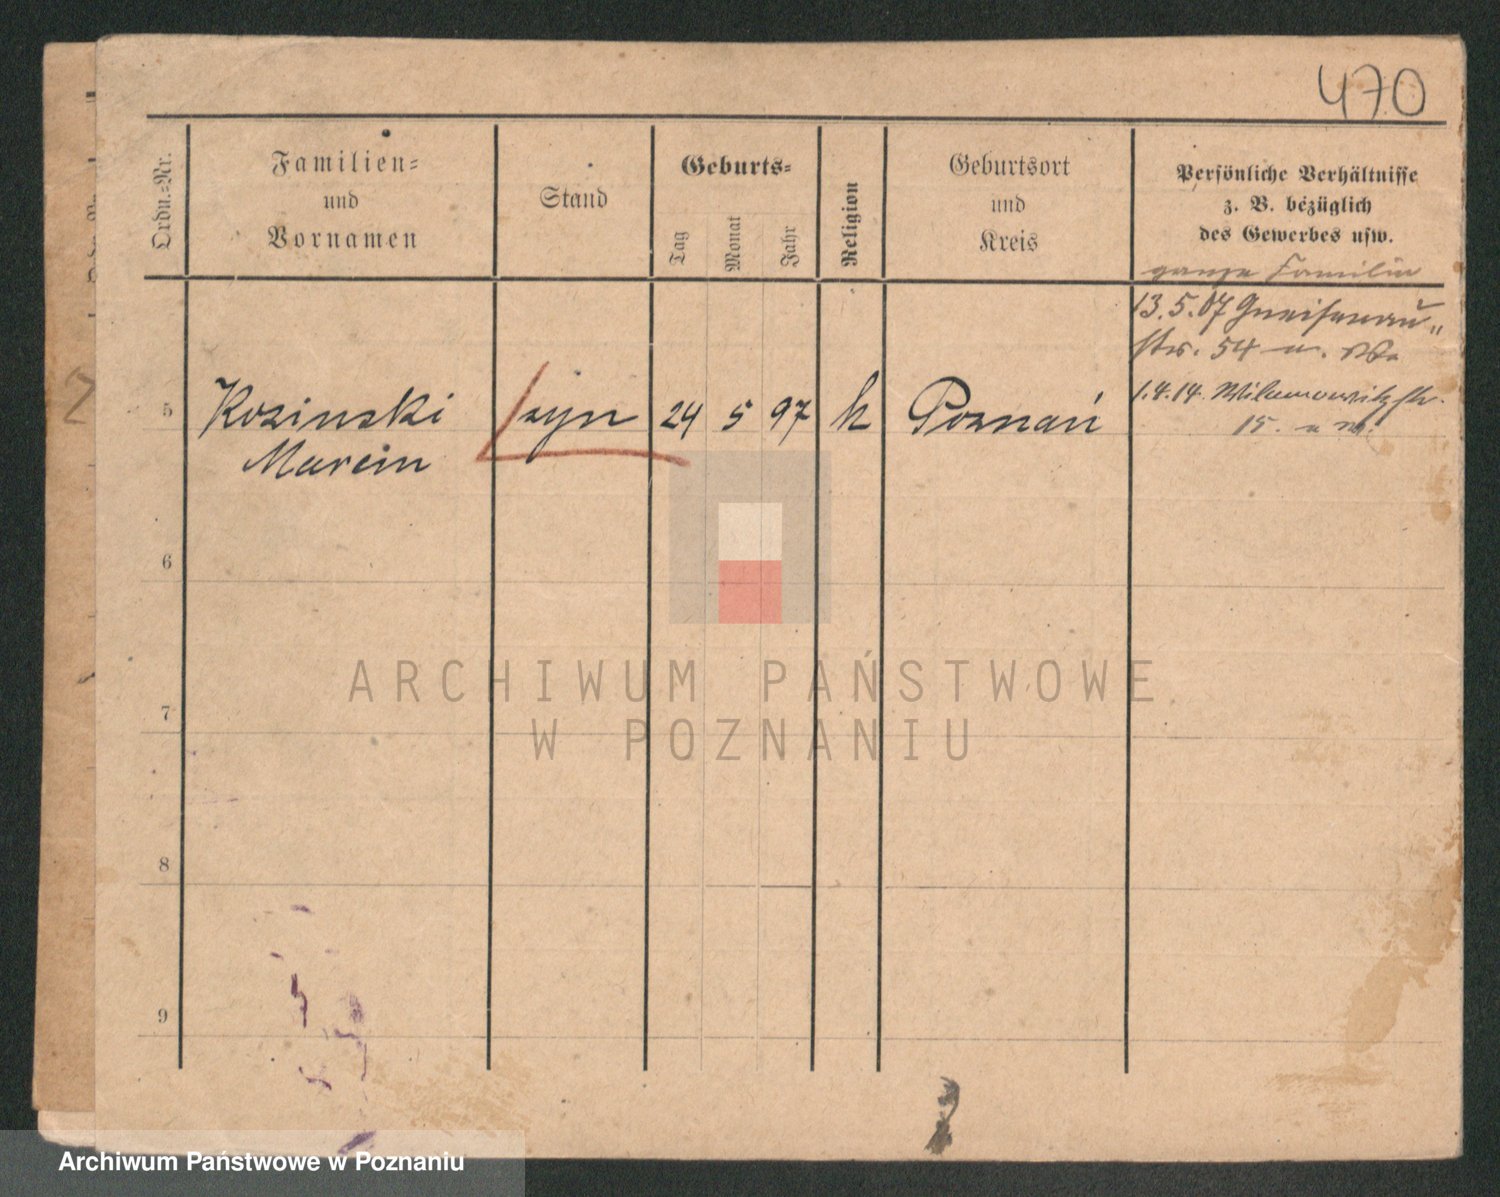 470
Ordn.=Nr.
Familien=
und
Vornamen
Stand
Geburts=
Tag
Monat
Jahr
Religion
Geburtsort
und
Kreis
Persönliche Verhältnisse
z. B. bezüglich
des Gewerbes usw.
ganze Familie
13.5.07 Gneisenau
str. 54
1.4.14. Wilamowitzstr.
15.
5
Kozinski
Marcin
syn
24
5
97
k
Poznań
6
7
8
9
2
ARCHIWUM PAŃSTWOWE
W POZNANIU
Archiwum Państwowe w Poznaniu